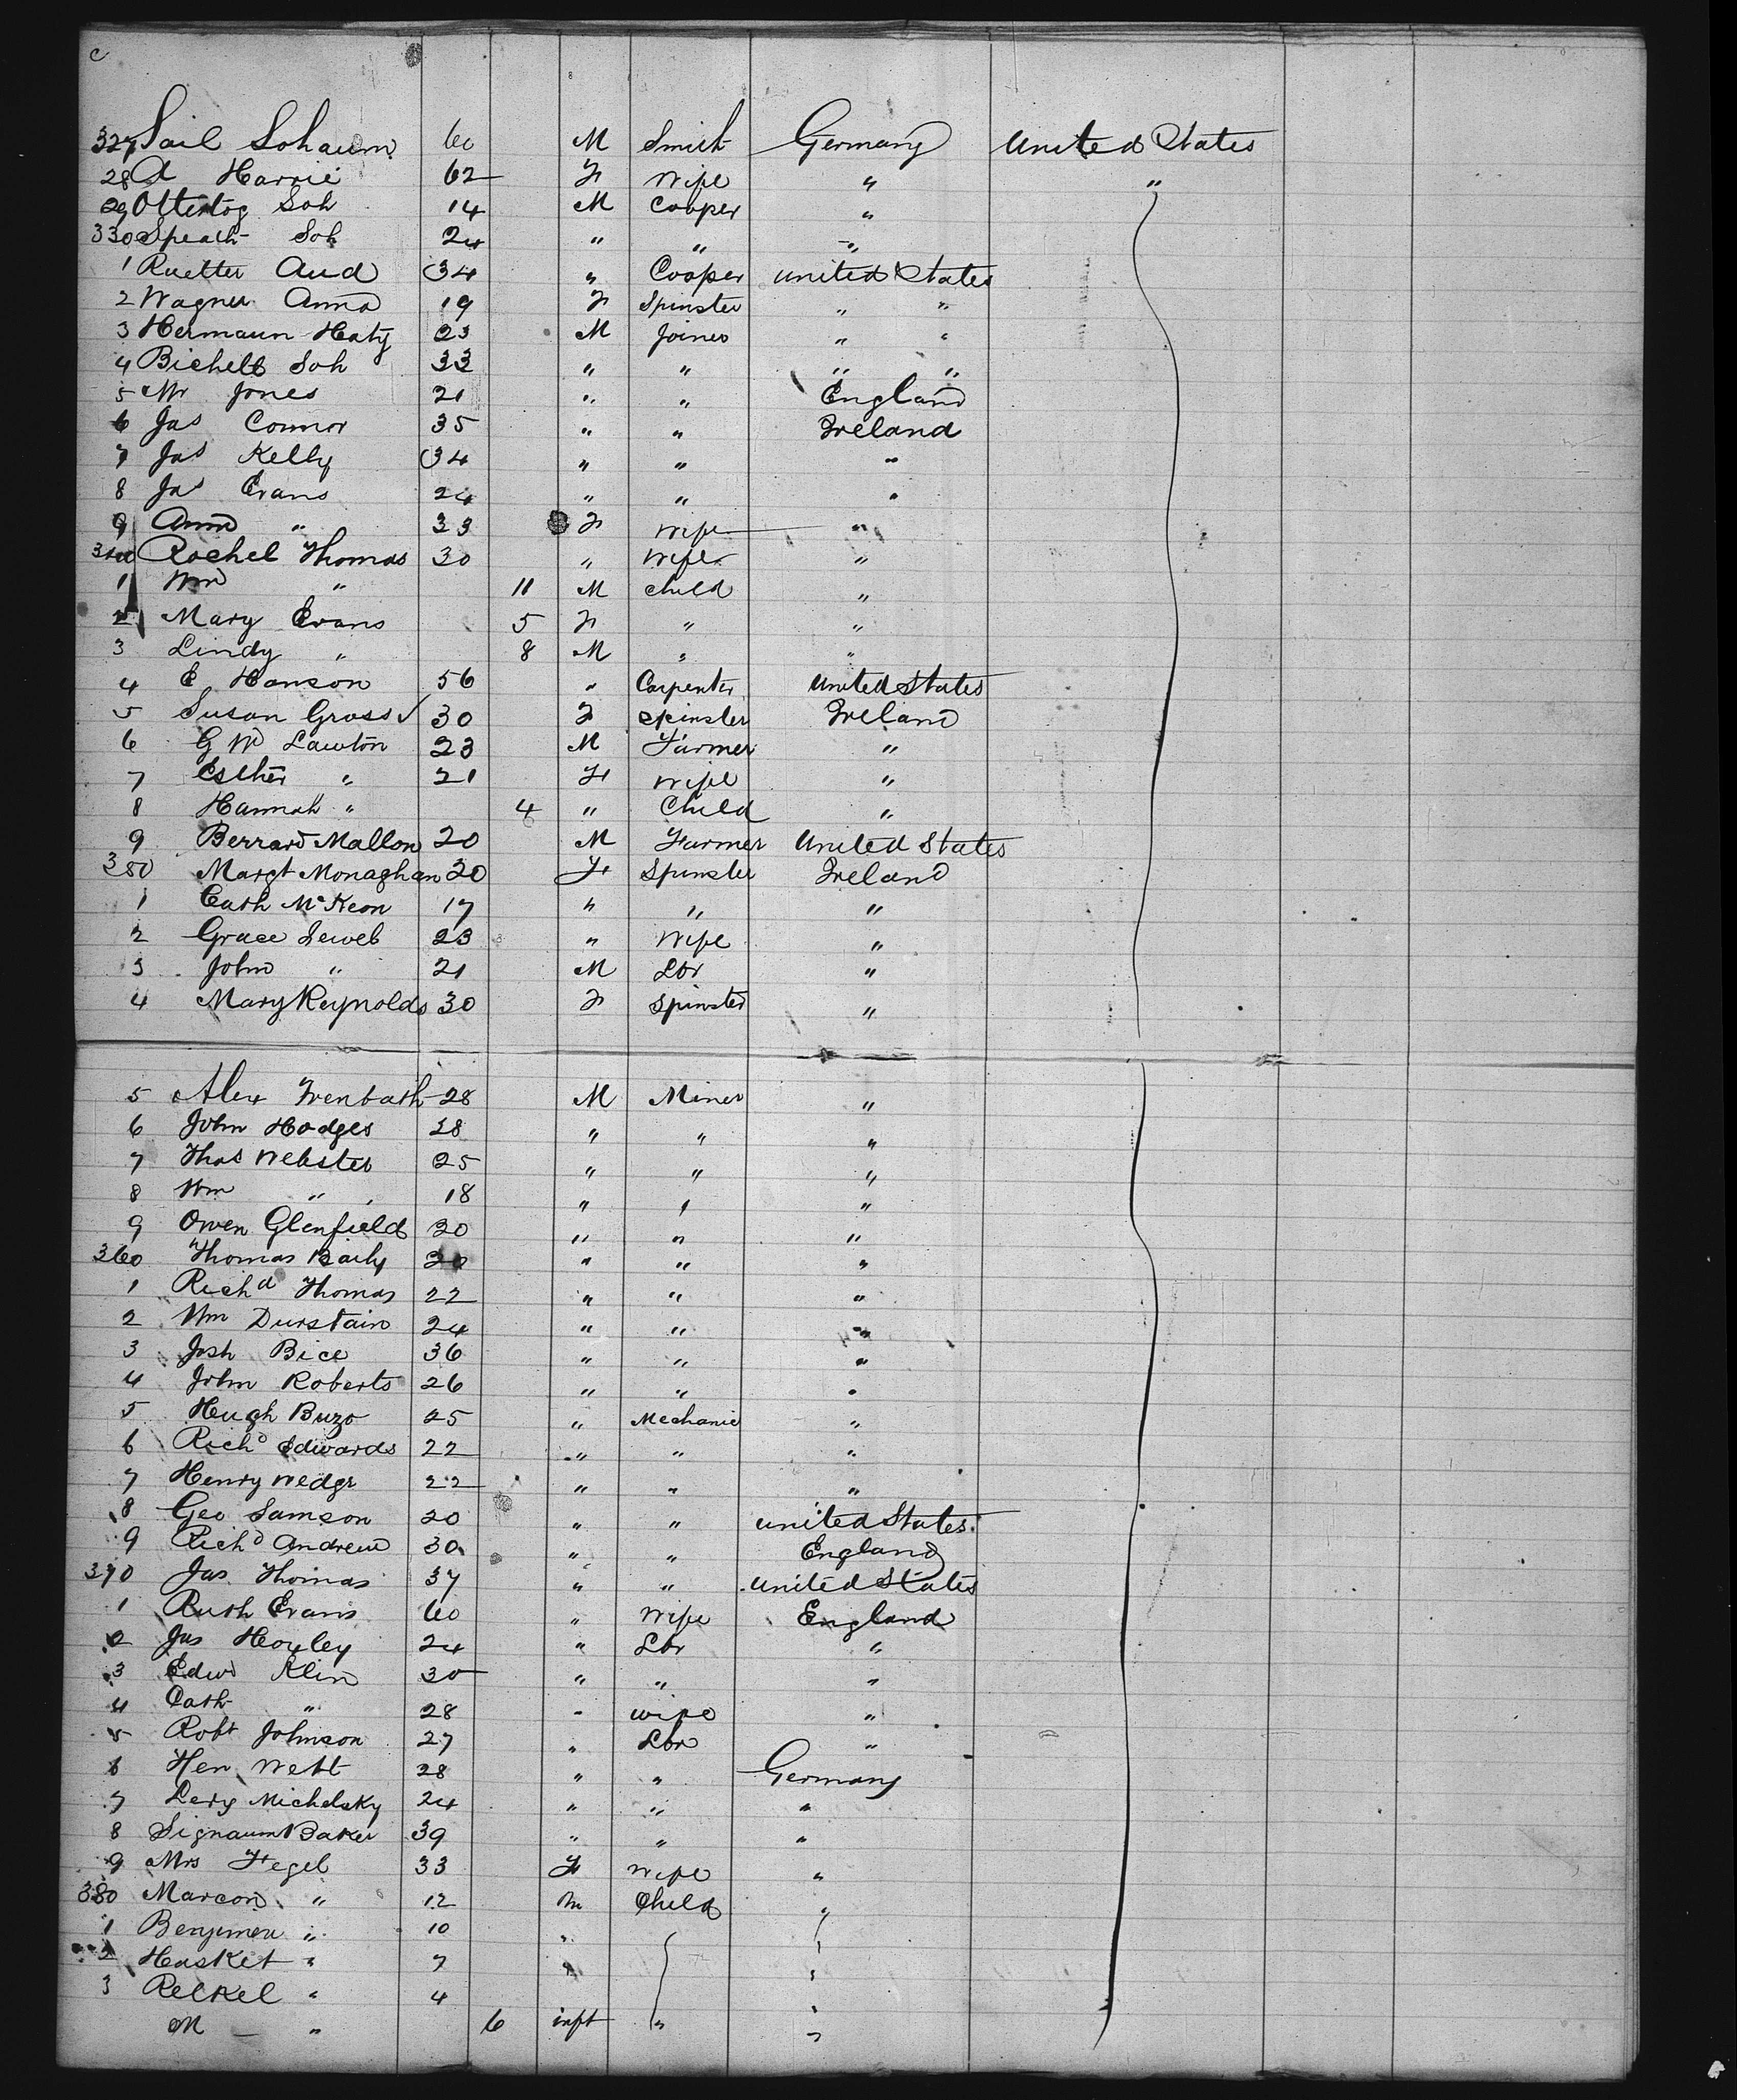 c
327 Sail Sohaum 60 M Smith Germany United States
28 A Harrie 62 F Wife " "
29 Ottertog Soh 14 M Cooper "
330 Speath Soh 24 " " "
1 Ruetter Aud 34 " Cooper United States
2 Wagner Anna 19 F Spinster " "
3 Hermann Haty 23 M Joiner " "
4 Bichelb Soh 33 " " " "
5 Mr Jones 21 " " England
6 Jas Connor 35 " " Ireland
7 Jas Kelly 34 " " "
8 Jas Evans 24 " " "
9 Anna " 33 F Wife "
340 Rachel Thomas 30 " Wife "
1 Wm " 11 M child "
2 Mary Evans 5 F " "
3 Lindy " 8 M " "
4 E Hanson 56 " Carpenter United States
5 Susan Gross 30 F Spinster Ireland
6 G W Lawton 23 M Farmer "
7 Esther " 21 F Wife "
8 Hannah " 4 " Child "
9 Berrard Mallon 20 M Farmer United States
350 Margt Monaghan 20 F Spinster Ireland
1 Cath McKeon 17 " " "
2 Grace Seweb 23 " Wife "
3 John " 21 M Lbr "
4 Mary Reynolds 30 F Spinster "
5 Alex Trenbath 28 M Miner "
6 John Hodges 28 " " "
7 Thos Webster 25 " " "
8 Wm " 18 " " "
9 Owen Glenfield 30 " " "
360 Thomas Baily 30 " " "
1 Richd Thomas 22 " " "
2 Wm Durstain 24 " " "
3 Josh Bice 36 " " "
4 John Roberts 26 " " "
5 Hugh Buzo 25 " Mechanic "
6 Richd Edwards 22 " " "
7 Henry Wedgr 22 " " "
8 Geo Samson 20 " " United States
9 Richd Andrew 30 " " England
370 Jas Thomas 37 " " United States
1 Ruth Evans 60 " Wife England
2 Jas Hoxley 24 " Lbr "
3 Edwd Klin 30 " " "
4 Cath " 28 " wife "
5 Robt Johnson 27 " Lbr "
6 Hen Webb 28 " " Germany
7 Levy Michelsky 24 " " "
8 Signaum Baker 39 " " "
9 Mrs Fegel 33 F Wife "
380 Marcon " 12 m Child "
1 Benjimen " 10 " "
2 Hasket " 7 " "
3 Relkel " 4 "
M — " 6 inft " "